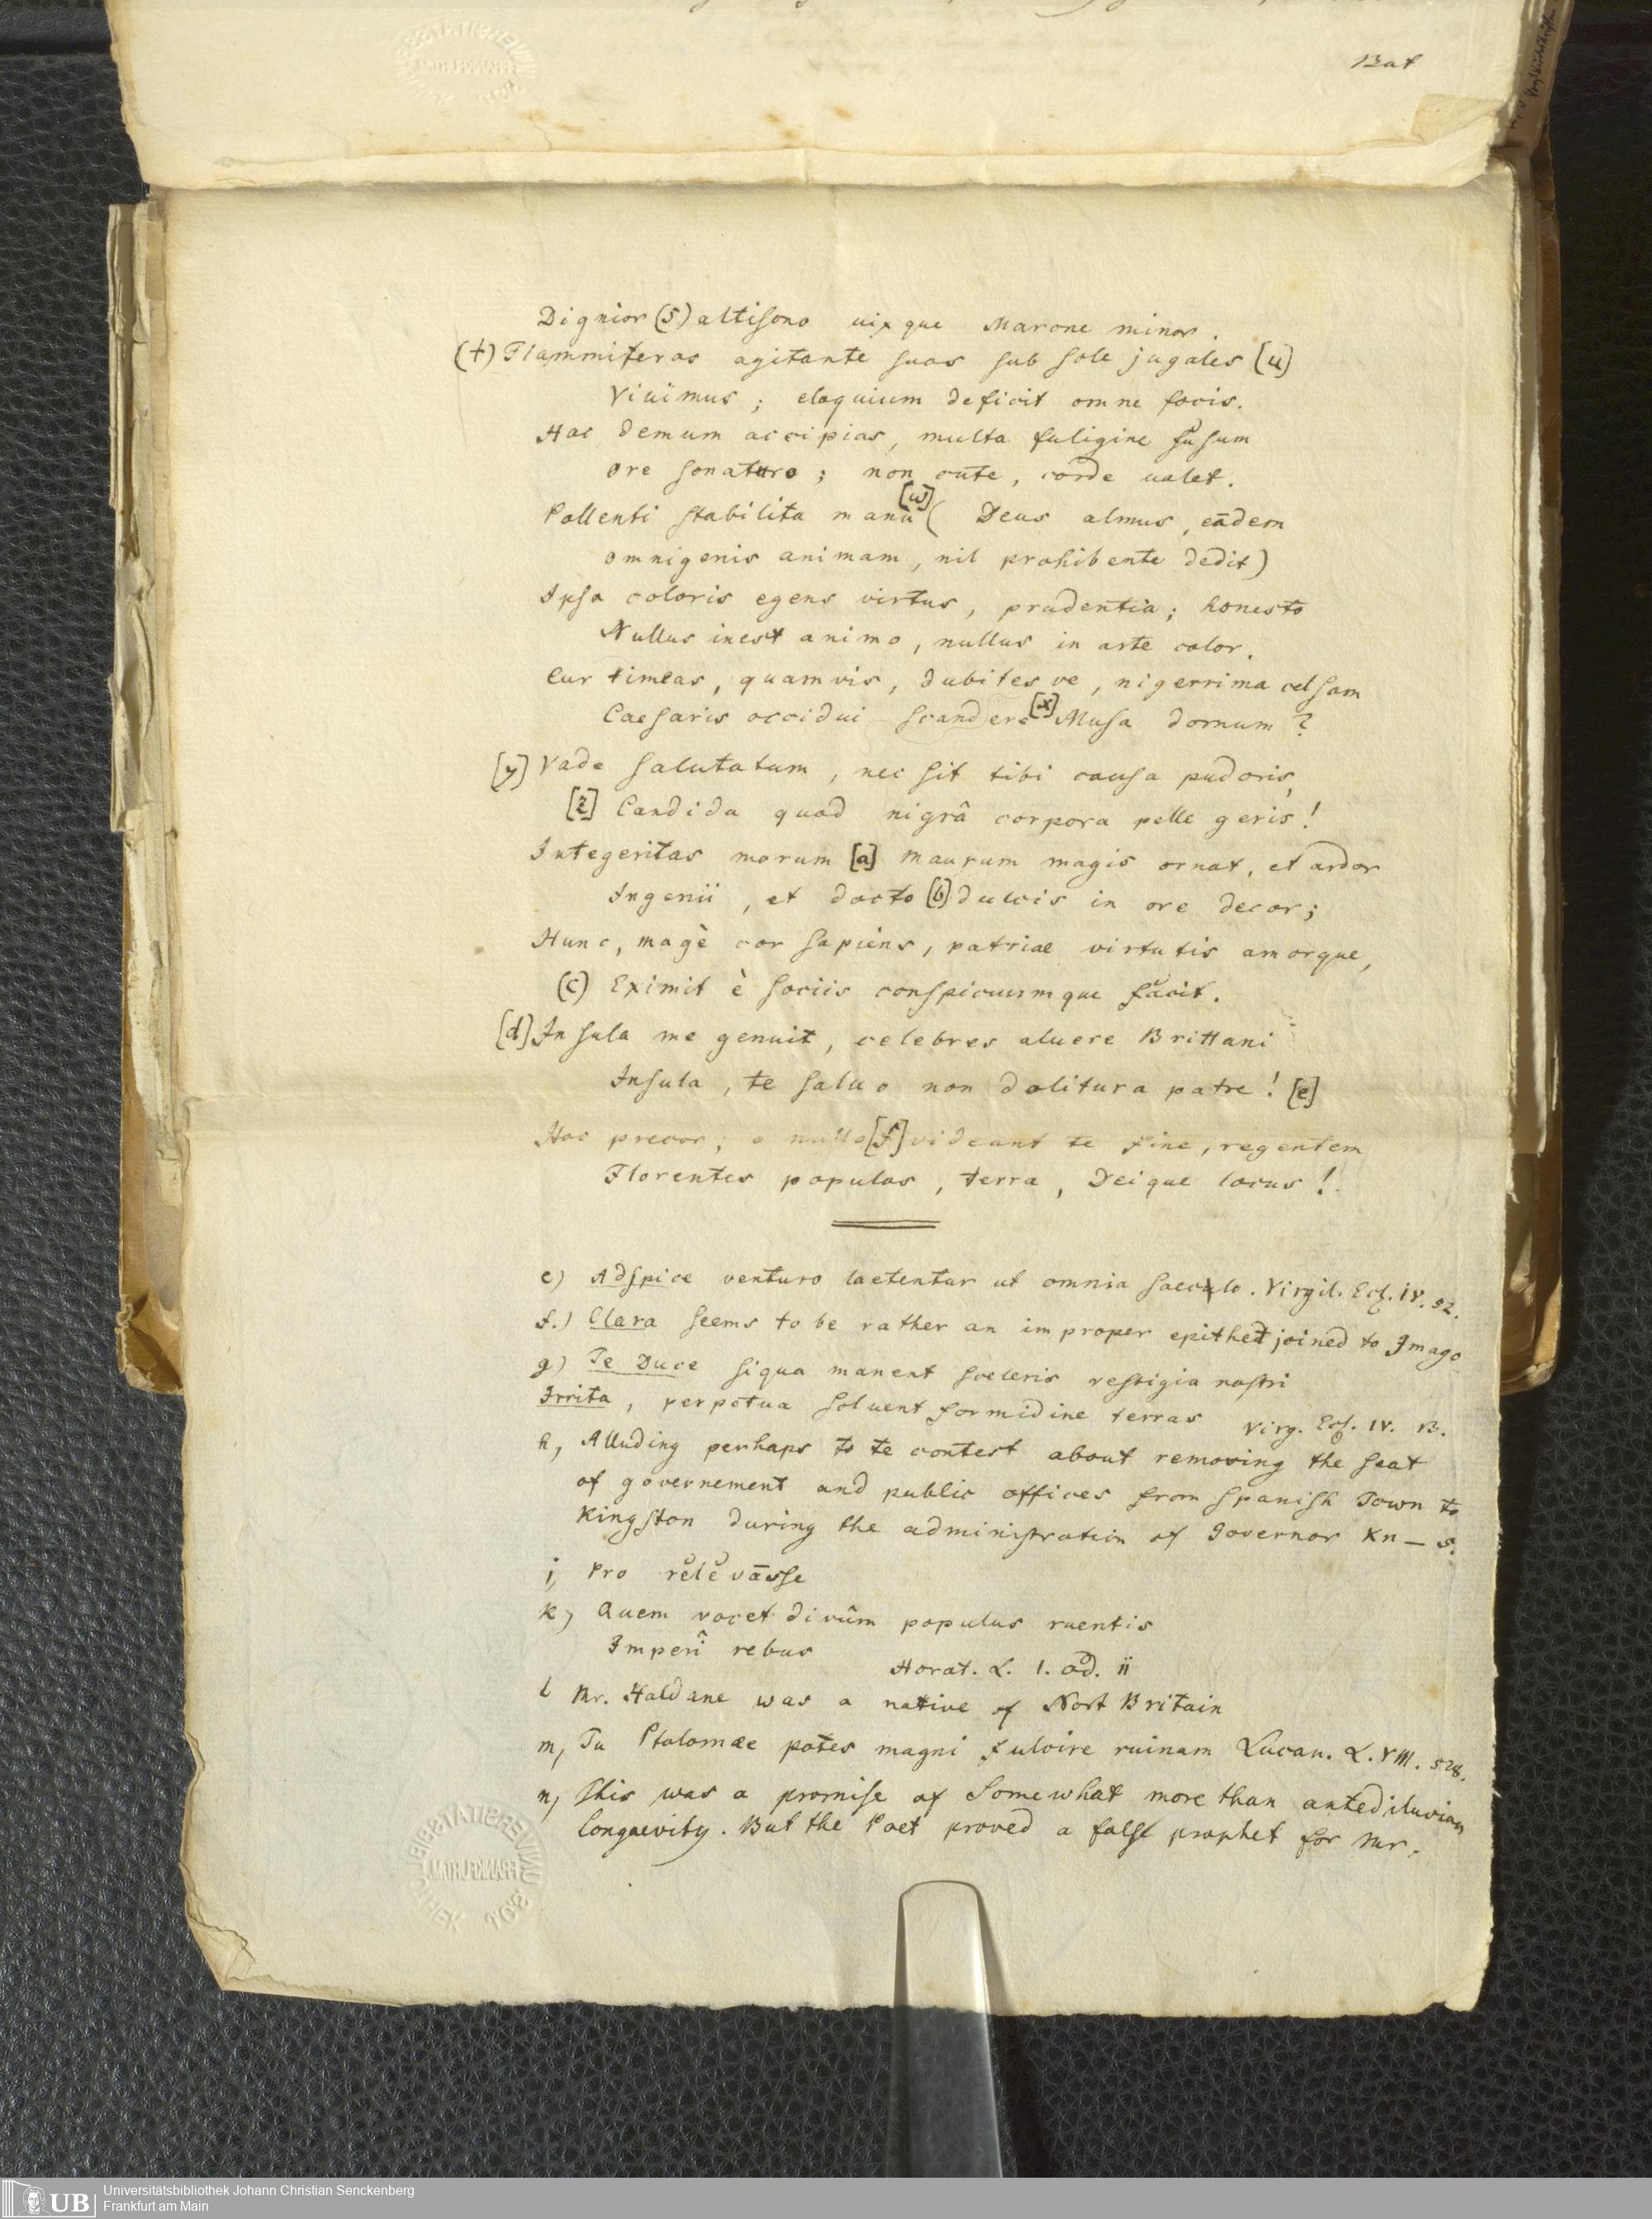 Bat
Dignior (s) altisono uixque Marone minor.
(t) Flammiferos agitante suos sub sole jugales [u]
Viuimus; eloquium deficit omne focis.
Hoc demum accipias, multa fuligine fusum
ore sonaturo; non cute, corde ualet.
Pollenti stabilita manû [w] ( Deus almus, eādem
omnigenis animam, nil prohibente dedit)
Ipsa coloris egens virtus, prudentia; honesto
Nullus inest animo, nullus in arte color.
Cur timeas, quamvis, dubitesve, nigerrima celsam
Caesaris occidui scandere [x] Musa domum?
[y] Vade salutatum, nec sit tibi causa pudoris,
[z] Candida quod nigrâ corpora pelle geris!
Integeritas morum [a] maurum magis ornat, et ardor
Ingenii, et docto [b] dulcis in ore decor;
Hunc, magè cor sapiens, patriae virtutis amorque,
(c) Eximit è sociis conspicuumque făcit.
[d] Insula me genuit, celebres aluere Brittani
Insula, te saluo non dolitura patre! [e]
Hoc precor; o nullo [f] videant te fine, regentem
Florentes populos, terra, Deique locus!
e) Adspice venturo laetentur ut omnia saeculo. Virgil. Ecl. IV. 52.
f.) Clara seems to be rather an improper epithet joined to Imago
g) Te Duce siqua manent sceleris vestigia nostri
Irrita, perpetua soluent formidine terras Virg. Ecl. IV. 13.
h, Alluding perhaps to te contest about removing the seat
of governement and public offices from Spanish Town to
Kingston during the administration of Governor Kn—s.
i, Pro rĕlĕvāsse
k, Quem vocet divûm populus ruentis
Imperî rebus
Horat. L. 1. od. ii
l Mr. Haldane was a native of Nort Britain
m, Tu Ptolomæe potes magni fulcire ruinam Lucan. L. VIII. 528.
n, This was a promise of somewhat more than antediluvian
longaevity. But the Poet proved a false prophet for Mr.
UB
Universitätsbibliothek Johann Christian Senckenberg
Frankfurt am Main